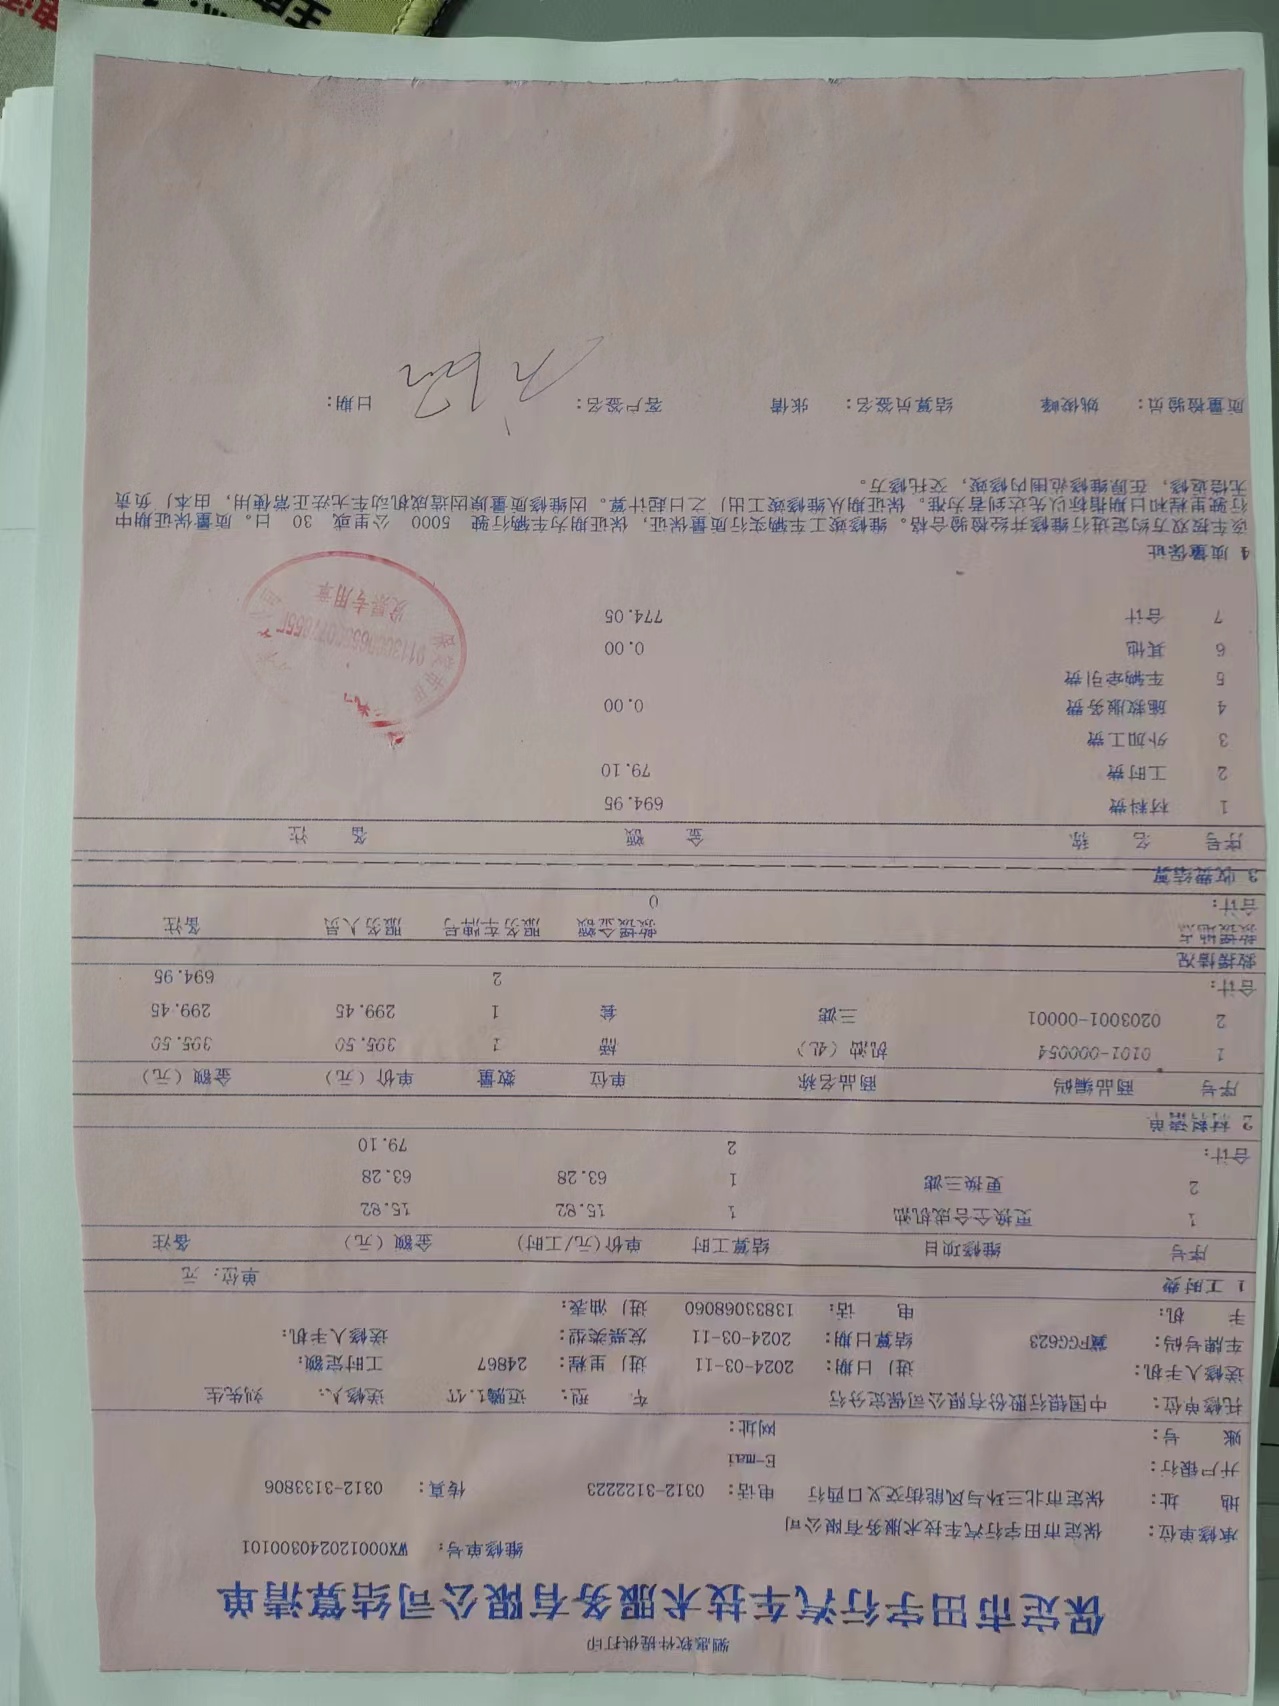 测惠软件提供打印
保定市田宇行汽车技术服务有限公司结算清单
维修单号: WX00012024030​0101
承修单位: 保定市田宇行汽车技术服务有限公司
地 址: 保定市北三环与风能街交叉口西行 电话: 0312-3122223 传真: 0312-3133806
开户银行: E-mai
账 号: 网址:
托修单位: 中国银行股份有限公司保定分行 车 型: 迈腾1.4T 送修人: 刘先生
送修人手机: 进厂日期: 2024-03-11 进厂里程: 24867 工时定额:
车牌号码: 冀FGG623 结算日期: 2024-03-11 发票类型: 送修人手机:
手 机: 电 话: 13833068060 进厂油表:
1 工时费 单位: 元
序号 维修项目 结算工时 单价(元/工时) 金额(元) 备注
1 更换全合成机油 1 15.82 15.82
2 更换三滤 1 63.28 63.28
合计: 2 79.10
2 材料清单
序号 商品编码 商品名称 单位 数量 单价(元) 金额(元)
1 0101-000054 机油(4L) 桶 1 395.50 395.50
2 0203001-00001 三滤 套 1 299.45 299.45
合计: 2 694.95
救援情况
救援地点 救援金额 服务车牌号 服务人员 备注
合计: 0
3 收费结算
序号 名 称 金 额 备 注
1 材料费 694.95
2 工时费 79.10
3 外加工费
4 施救服务费 0.00
5 车辆牵引费
6 其他 0.00
7 合计 774.05
发票专用章
4 质量保证
该车按双方约定进行维修并经检验合格。维修竣工车辆实行质量保证,保证期为车辆行驶 5000 公里或 30 日。质量保证期中
行驶里程和日期指标以先达到者为准。保证期从维修竣工出厂之日起计算。因维修质量原因造成机动车无法正常使用,由本厂负责
无偿返修,在原维修范围内修竣,交托修方。
质量检验员: 姚俊峰 结算员签名: 张倩 客户签名: 日期: